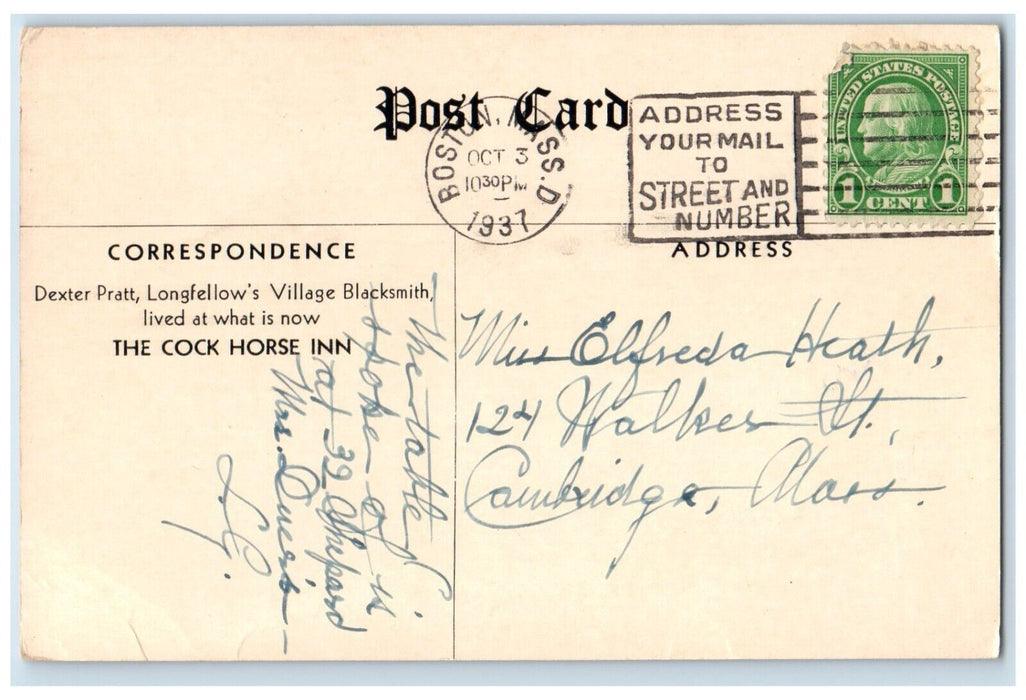 Post Card
BOSTON, MASS. D.
OCT 3
10 30 PM
1937
ADDRESS
YOUR MAIL
TO
STREET AND
NUMBER
UNITED STATES POSTAGE
1 CENT 1
CORRESPONDENCE
Dexter Pratt, Longfellow's Village Blacksmith,
lived at what is now
THE COCK HORSE INN
ADDRESS
Miss Elfreda Heath,
124 Walker St.,
Cambridge, Mass.
The table I
spoke of is
at 39 Shepard
Mrs.
L.G.